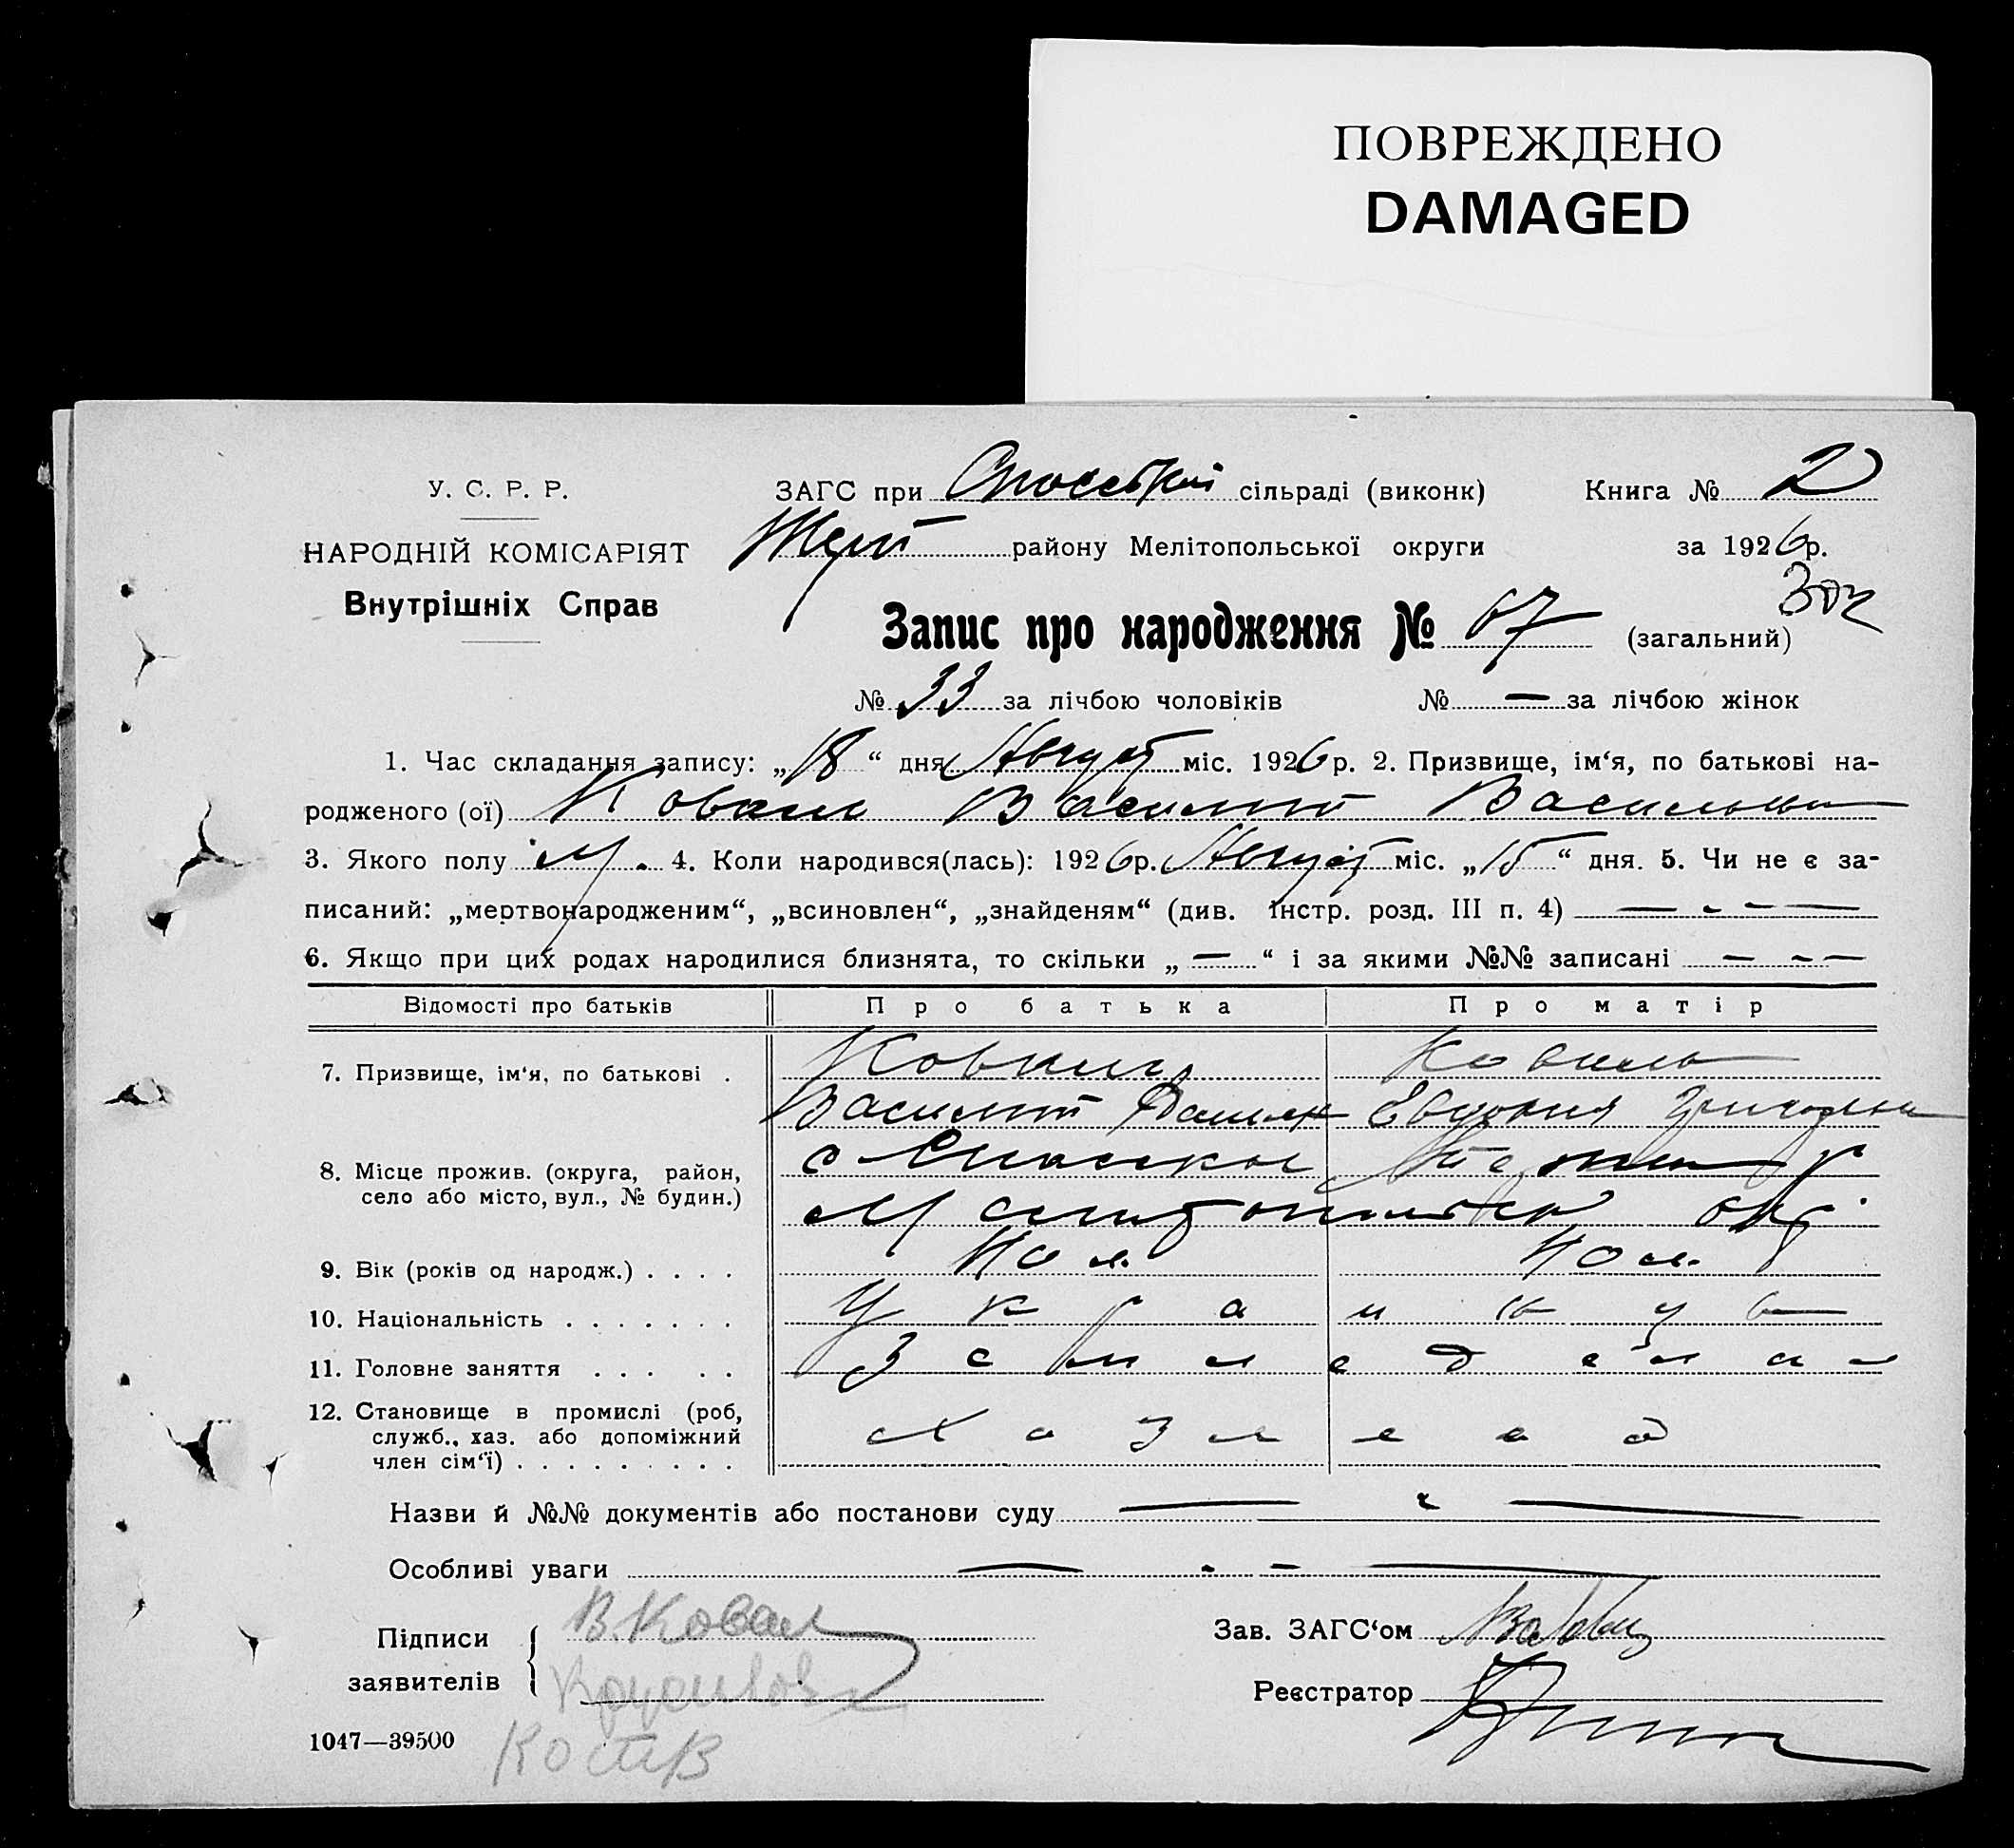 ПОВРЕЖДЕНО
DAMAGED
У. С. Р. Р.
ЗАГС при сільраді (виконк) Книга № 2
НАРОДНІЙ КОМІСАРІЯТ
району Мелітопольської округи за 1926 р.
Внутрішніх Справ
Запис про народження № 67 (загальний)
№ 33 за лічбою чоловіків № — за лічбою жінок
1. Час складання запису: „18“ дня Август міс. 1926 р. 2. Призвище, ім‘я, по батькові на-
родженого (ої) Коваль Василий Васильев
3. Якого полу М. 4. Коли народився(лась): 1926 р. Август міс. „15“ дня. 5. Чи не є за-
писаний: „мертвонародженим“, „всиновлен“, „знайденям“ (див. Інстр. розд. III п. 4) —
6. Якщо при цих родах народилися близнята, то скільки „—“ і за якими №№ записані —
Відомості про батьків Про батька Про матір
7. Призвище, ім‘я, по батькові . Коваль Коваль
Василий Евдокия
8. Місце прожив. (округа, район,
село або місто, вул., № будин.)
Мелитопольск окр.
9. Вік (років од народж.) . . . . 40 л. 40 л.
10. Національність . . . . . . .
11. Головне заняття . . . . .
12. Становище в промислі (роб,
служб., хаз. або допоміжний
член сім‘ї) . . . . . . . . .
Назви й №№ документів або постанови суду —
Особливі уваги —
Підписи В. Коваль Зав. ЗАГС‘ом
заявителів Реєстратор
1047—39500